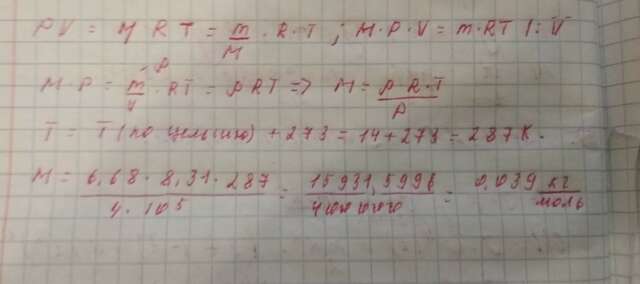 PV = M R T = m/M · R · T ; M · P · V = m · RT | : V
M · P = m/V · RT = ρRT => M = ρ R · T / P
T = T (по цельсию) + 273 = 14 + 273 = 287 K.
M = 6,68 · 8,31 · 287 / 4 · 10⁵ = 15931,5996 / 400000 = 0,039 кг/моль